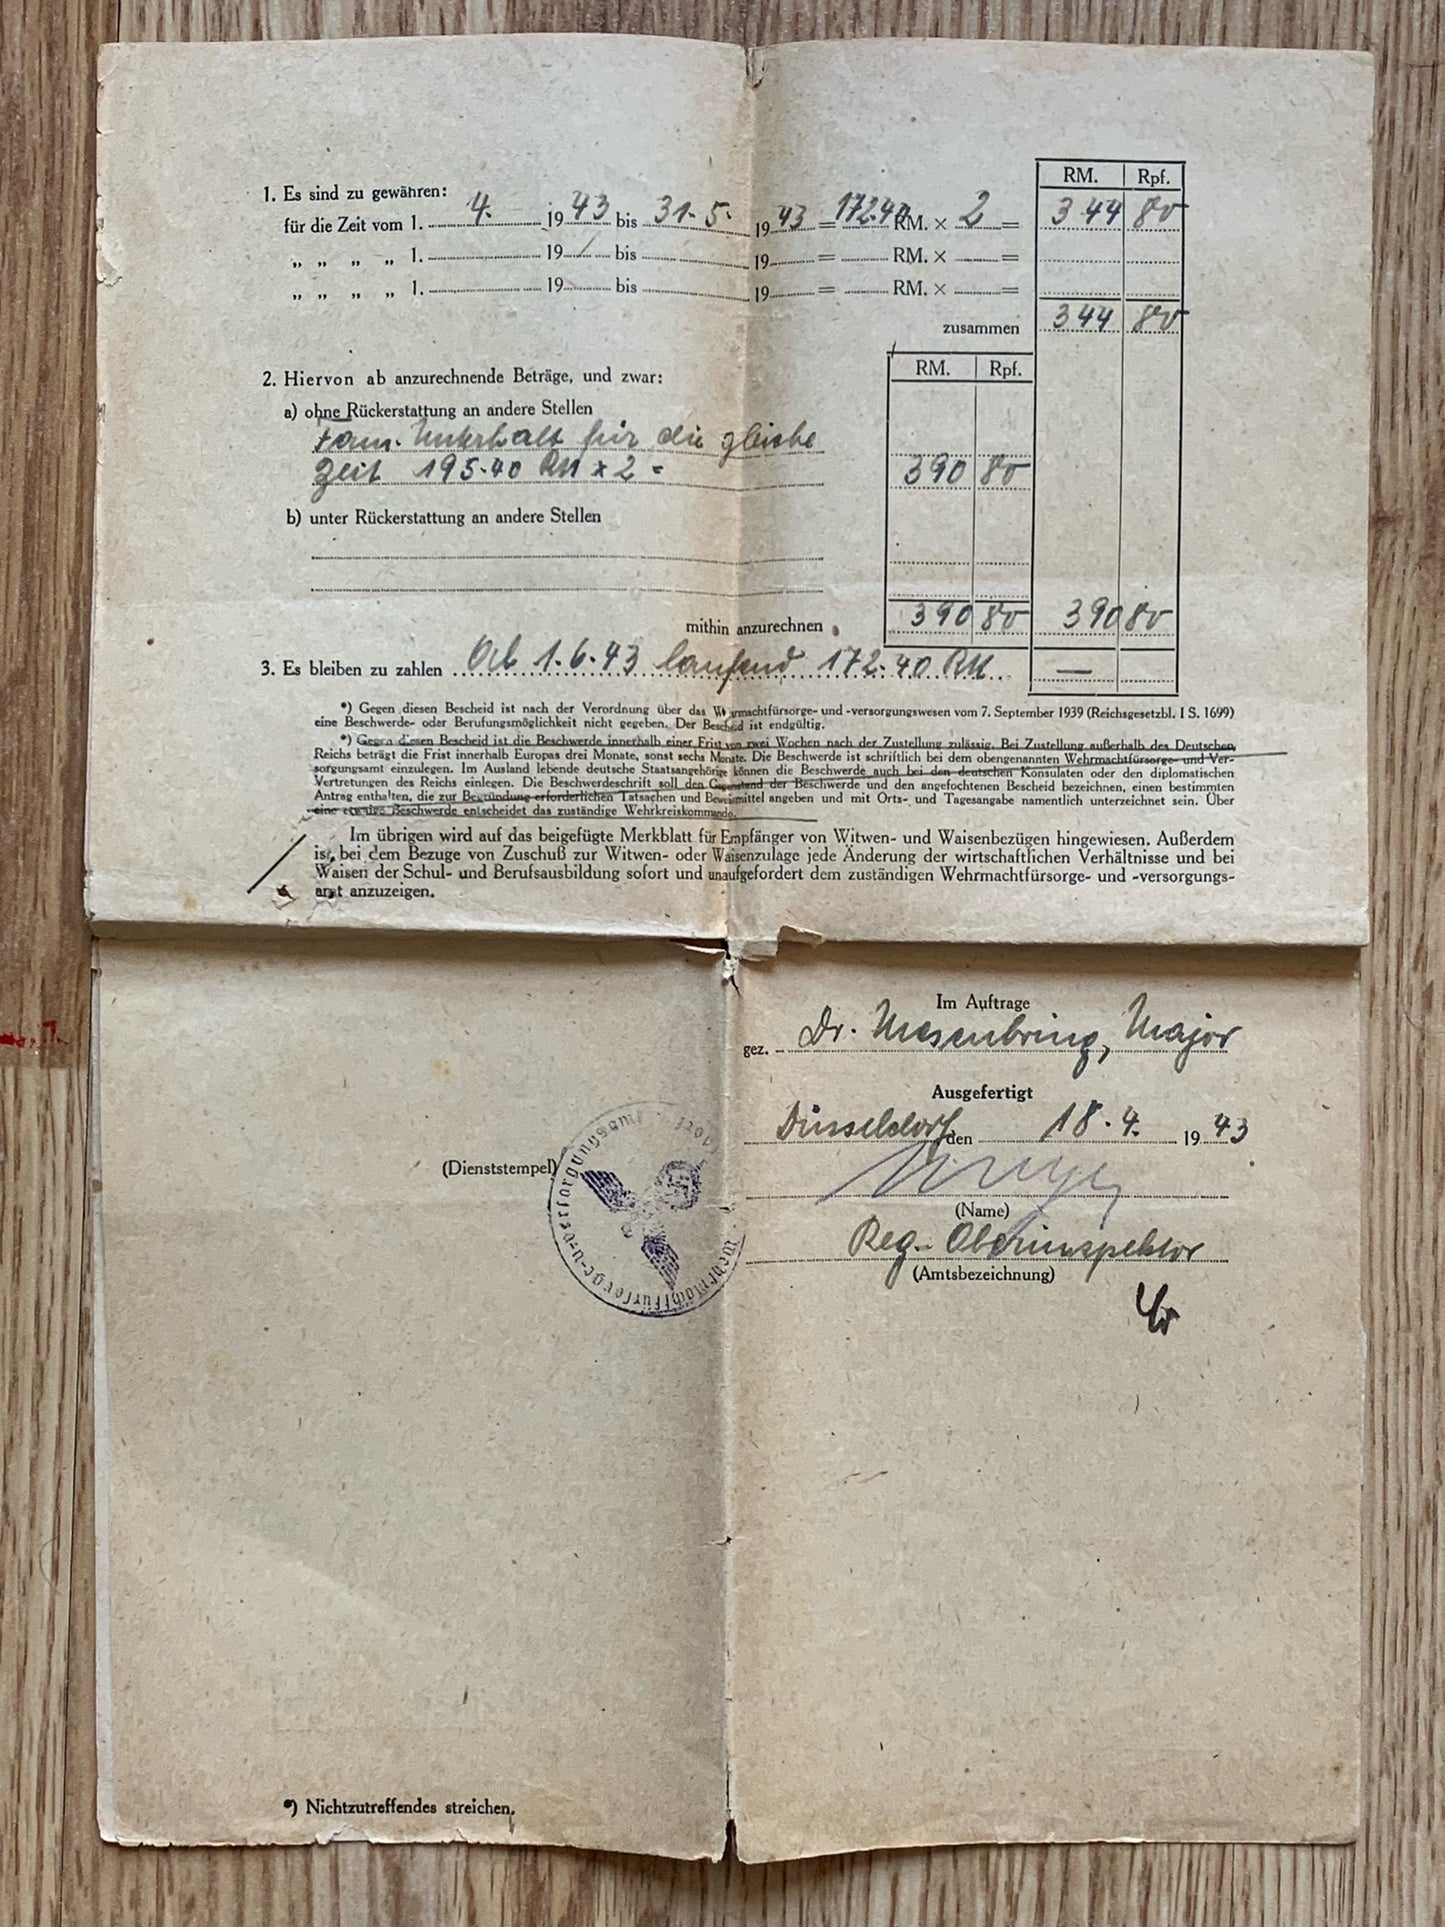 RM. Rpf.
1. Es sind zu gewähren:
für die Zeit vom 1. 4. 1943 bis 31. 5. 1943 = 172.40 RM. × 2 = 344 80
„ „ „ „ 1. 19 bis 19 = RM. × =
„ „ „ „ 1. 19 bis 19 = RM. × =
zusammen 344 80
RM. Rpf.
2. Hiervon ab anzurechnende Beträge, und zwar:
a) ohne Rückerstattung an andere Stellen
Fam. Unterhalt für die gleiche
Zeit 195.40 RM x 2 = 390 80
b) unter Rückerstattung an andere Stellen
mithin anzurechnen 390 80 390 80
3. Es bleiben zu zahlen Ab 1.6.43 laufend 172.40 RM. —
*) Gegen diesen Bescheid ist nach der Verordnung über das Wehrmachtfürsorge- und -versorgungswesen vom 7. September 1939 (Reichsgesetzbl. I S. 1699)
eine Beschwerde- oder Berufungsmöglichkeit nicht gegeben. Der Bescheid ist endgültig.
*) Gegen diesen Bescheid ist die Beschwerde innerhalb einer Frist von zwei Wochen nach der Zustellung zulässig. Bei Zustellung außerhalb des Deutschen
Reichs beträgt die Frist innerhalb Europas drei Monate, sonst sechs Monate. Die Beschwerde ist schriftlich bei dem obengenannten Wehrmachtfürsorge- und Ver-
sorgungsamt einzulegen. Im Ausland lebende deutsche Staatsangehörige können die Beschwerde auch bei den deutschen Konsulaten oder den diplomatischen
Vertretungen des Reichs einlegen. Die Beschwerdeschrift soll den Gegenstand der Beschwerde und den angefochtenen Bescheid bezeichnen, einen bestimmten
Antrag enthalten, die zur Begründung erforderlichen Tatsachen und Beweismittel angeben und mit Orts- und Tagesangabe namentlich unterzeichnet sein. Über
eine etwaige Beschwerde entscheidet das zuständige Wehrkreiskommando.
Im übrigen wird auf das beigefügte Merkblatt für Empfänger von Witwen- und Waisenbezügen hingewiesen. Außerdem
ist bei dem Bezuge von Zuschuß zur Witwen- oder Waisenzulage jede Änderung der wirtschaftlichen Verhältnisse und bei
Waisen der Schul- und Berufsausbildung sofort und unaufgefordert dem zuständigen Wehrmachtfürsorge- und -versorgungs-
amt anzuzeigen.
Im Auftrage
gez. Dr. Mesenbring, Major
Ausgefertigt
Düsseldorf den 18.4. 1943
(Dienststempel)
Wehrmachtfürsorge-u-versorgungsamt
(Name)
Reg.-Oberinspektor
(Amtsbezeichnung)
*) Nichtzutreffendes streichen.